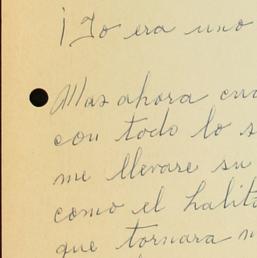 ¡Yo era uno
Mas ahora
con todo lo
me llevare su
como el
que tornara